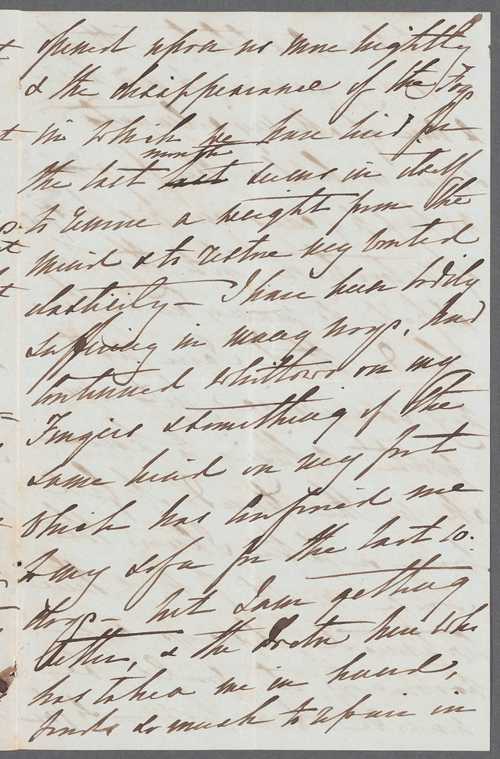 opened upon us more brightly
& the disappearance of the Fogs
in which we have lived for
the last month seems in itself
to remove a weight from the
mind & to restore my wonted
elasticity – I have been bodily
suffering in many ways, had
continued whitlows on my
Fingers & something of the
same kind on my foot
which has confined me
to my sofa for the last 10
days – but I am getting
better, & the Doctor here who
has taken me in hand,
finds so much to repair in